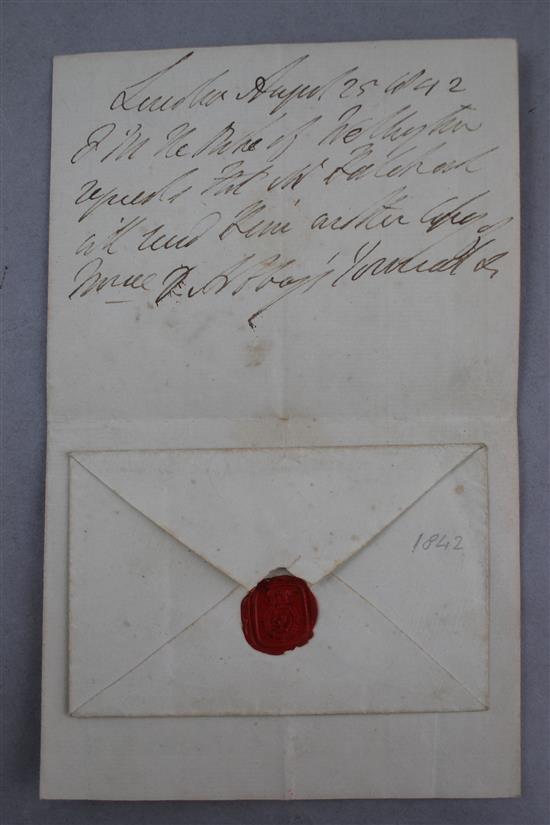 London August 25 1842
F M The Duke of Wellington
requests that Mr Hatchard
will send Him another Copy of
Mme D'Arblay's Journal &c
1842